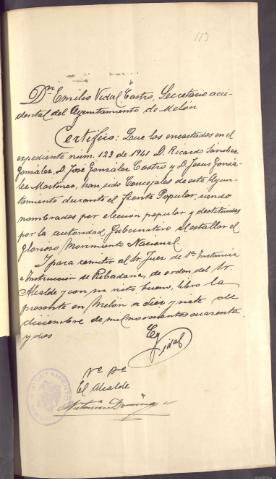 113
Dn Emilio Vidal Castro, Secretario acci-
dental del Ayuntamiento de Melón
Certifico: Que los encartados en el
expediente núm. 123 de 1941 D. Ricardo Sanchez
Gonzalez, D. José González Castro y D. Jesus Gonzá-
lez Martinez, han sido Concejales de este Ayun-
tamiento durante el Frente Popular, siendo
nombrados por eleccion popular y destituidos
por la autoridad Gubernativa al estallar el
Glorioso Movimiento Nacional
Y para remitir al Sr Juez de 1ª Instancia
e Instrucción de Ribadavia, de orden del Sr
Alcalde y con su visto bueno, libro la
presente en Melón a diez y siete de
diciembre de mil novecientos cuarenta
y dos
E Vidal
Vº Bº
El Alcalde